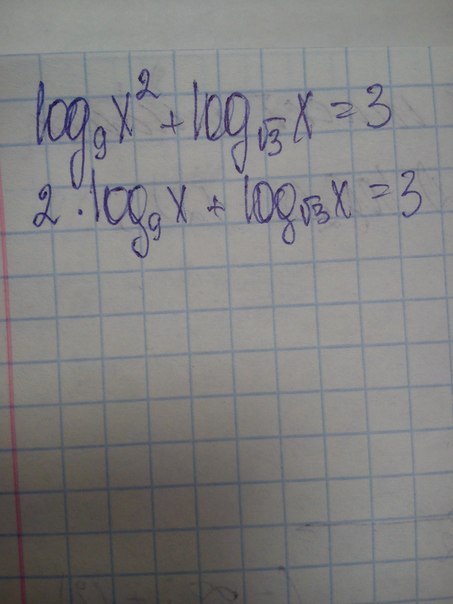 log₉x² + log_√3 x = 3
2 · log₉x + log_√3 x = 3